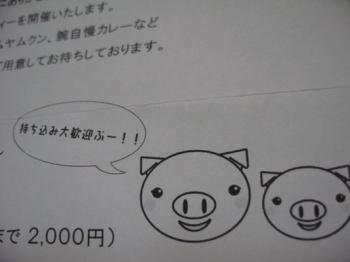 ィーを開催いたします。
ムヤムクン、腕自慢カレーなど
ご用意してお待ちしております。
持ち込み大歓迎ぶー！！
まで 2,000円）